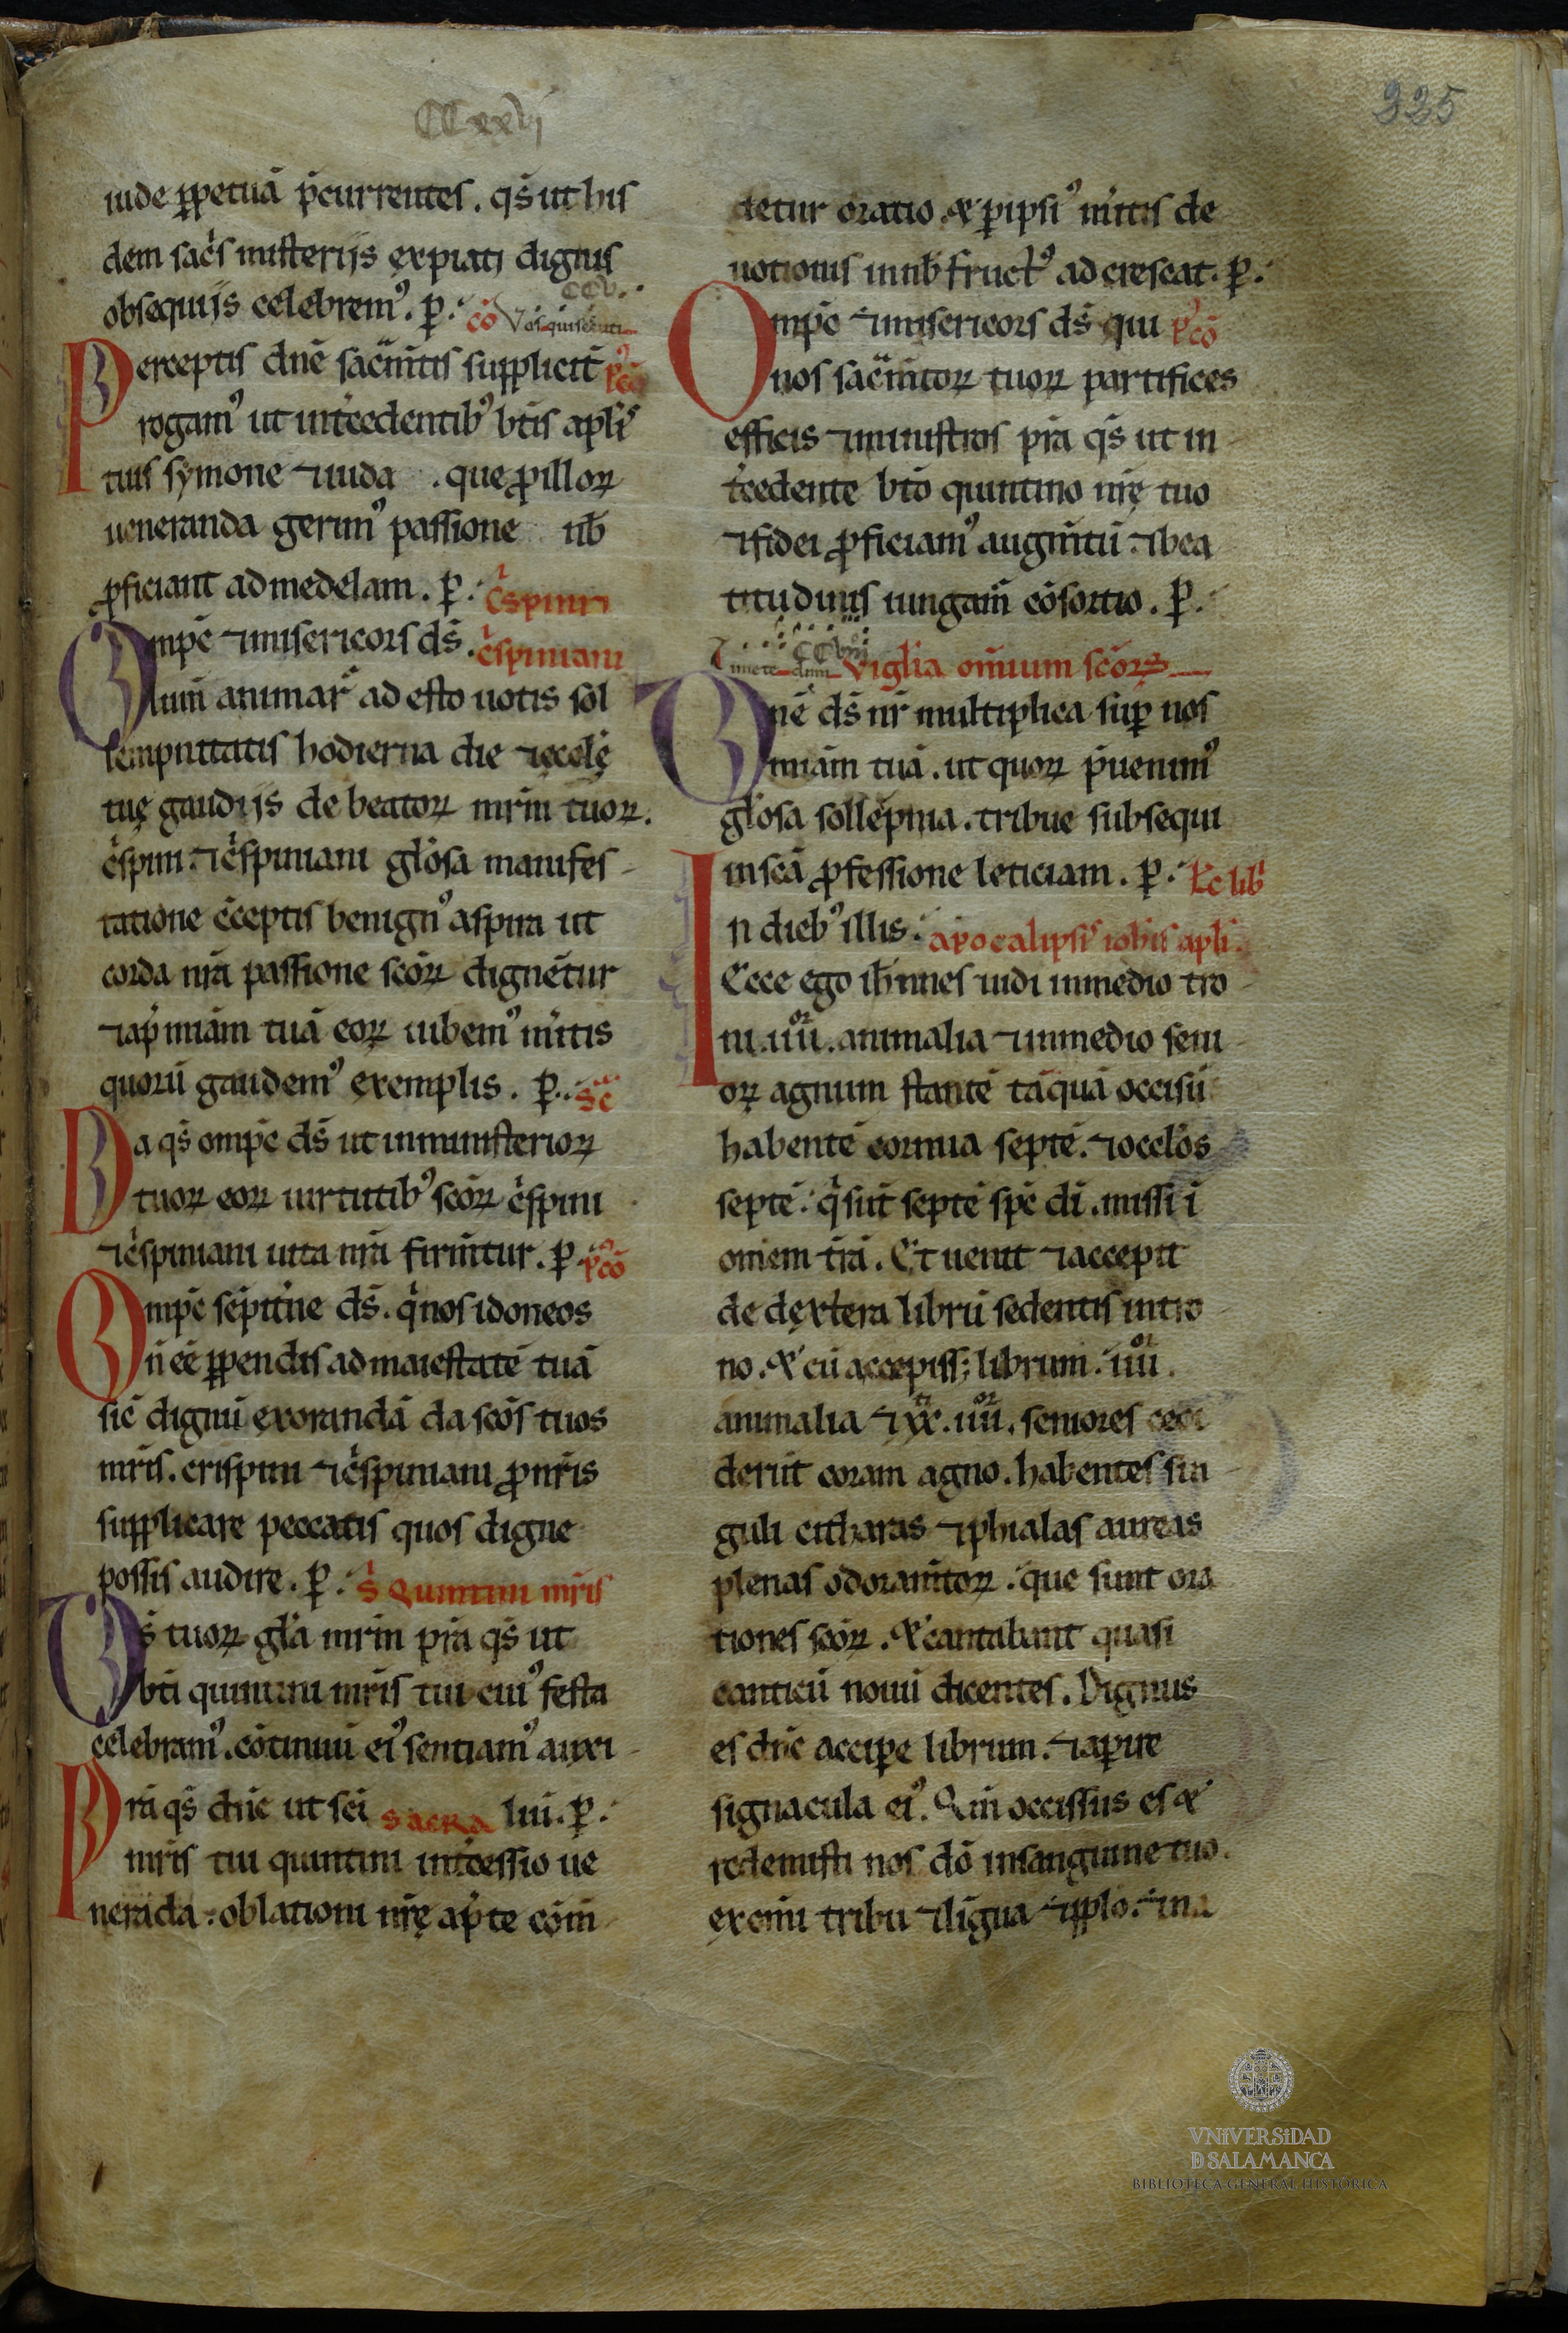 CCxxvj
225
iude ꝑpetuā p̄currentes. qs̄ ut his
dem sac̄s misterijs expiati dignis
obsequijs celebremꝰ. ꝑ. cō Vos qui secuti
CCV.
Perceptis dn̄e sac̄mtis suppliciť pꝰcō
rogamꝰ ut int̄cedentibꝰ bt̄is apl̄i
tuis symone ⁊ iuda . que ꝓ illoꝝ
ueneranda gerimꝰ passione nb̄
ꝓficiant ad medelam. ꝑ. c̄spini
Ompc̄ ⁊ misericors ds̄. c̄spiniani
lum̄ animaꝝ adesto uotis sol
lempnitatis hodierna die ⁊ cele
tuę gaudijs de beatoꝝ mr̄m tuoꝝ.
c̄spini. ⁊ c̄spiniani gl̄osa manifes-
tatione c̄ceptis benignꝰ aspira ut
corda nr̄a passione sc̄oꝝ dignet̄ur
⁊ ap̄ miām tuā eoꝝ iubemꝰ m̄itis
quorū gaudemꝰ exemplis. ꝑ. sc̄
Da qs̄ ompc̄ ds̄ ut in ministerioꝝ
tuoꝝ eoꝝ uirtutibꝰ sc̄oꝝ c̄spini
⁊ c̄spiniani uita nr̄a firm̄tur. ꝑ. pꝰcō
Ompc̄ sēpit̄ne ds̄. q̄ nos idoneos
n̄ eē ꝑpendis ad maiestatē tuā
sic̄ digni exorandā da sc̄os tuos
mr̄is. crispini ⁊ c̄spiniani ꝓ nr̄is
supplicare peccatis quos digne
possis audire. ꝑ. S̄ Quintini mr̄is
Ds̄ tuoꝝ gl̄a mr̄m pr̄a qs̄ ut
bt̄i quintini mr̄is tui cuiꝰ festa
celebramꝰ. cōtinui eiꝰ sentiamꝰ auxi-
Pr̄a qs̄ dn̄e ut sc̄i sacra lui. ꝑ.
mr̄is tui quintini int̄cessio ue
nerāda. oblationi nr̄ę ap̄te cōm̄
detur oratio. & ꝑ ipsiꝰ m̄itis de
uotionis in nb̄ fructꝰ adcrescat. ꝑ.
Ompc̄ ⁊ misericors ds̄ qui pꝰcō
nos sac̄mtoꝝ tuoꝝ partifices
efficis ⁊ ministros pr̄a qs̄ ut in
t̄cedente bt̄o quintino mr̄ę tuo
⁊ fidei ꝓficiamꝰ augm̄tū. ⁊ bea
titudinis iungam̄ cōsortio. ꝑ.
CCVIII
Timete dnm Viglia om̄ium sc̄oꝝ
Dn̄e ds̄ nr̄ multiplica suꝑ nos
miām tuā. ut quoꝝ p̄uenimꝰ
gl̄osa sollēpnia. tribue subsequi
in sc̄a ꝓfessione leticiam. ꝑ. Lc̄ lib̄
In diebꝰ illis. apocalipsiꝰ iohīs apl̄i.
Ecce ego ioh̄nnes uidi in medio tro-
ni .iiiior. animalia ⁊ in medio seni
oꝝ agnum stantē tāquā occisū
habentē cornua septē. ⁊ ocl̄os
septē. q̄ sūt septē spc̄ di. missi ī
om̄em tr̄ā. Et uenit ⁊ accepit
de dextera librū sedentis in tro
no. & cū accepiss; librum. iiiior.
animalia ⁊ xxti. iiiior. seniores ceci
derūt coram agno. habentes sin-
guli citharas ⁊ phialas aureas
plenas odoram̄toꝝ. que sunt ora
tiones sc̄oꝝ. & cantabant quasi
canticū nouū dicentes. Dignus
es dn̄e accipe librum. ⁊ aperire
signacula eiꝰ. Qm̄ occissus es &
redemisti nos dō in sanguine tuo.
ex om̄i tribu ⁊ līgua ⁊ pplo. ⁊ na
VNiVERSiDAD
D SALAMANCA
BIBLIOTECA GENERAL HISTÓRICA